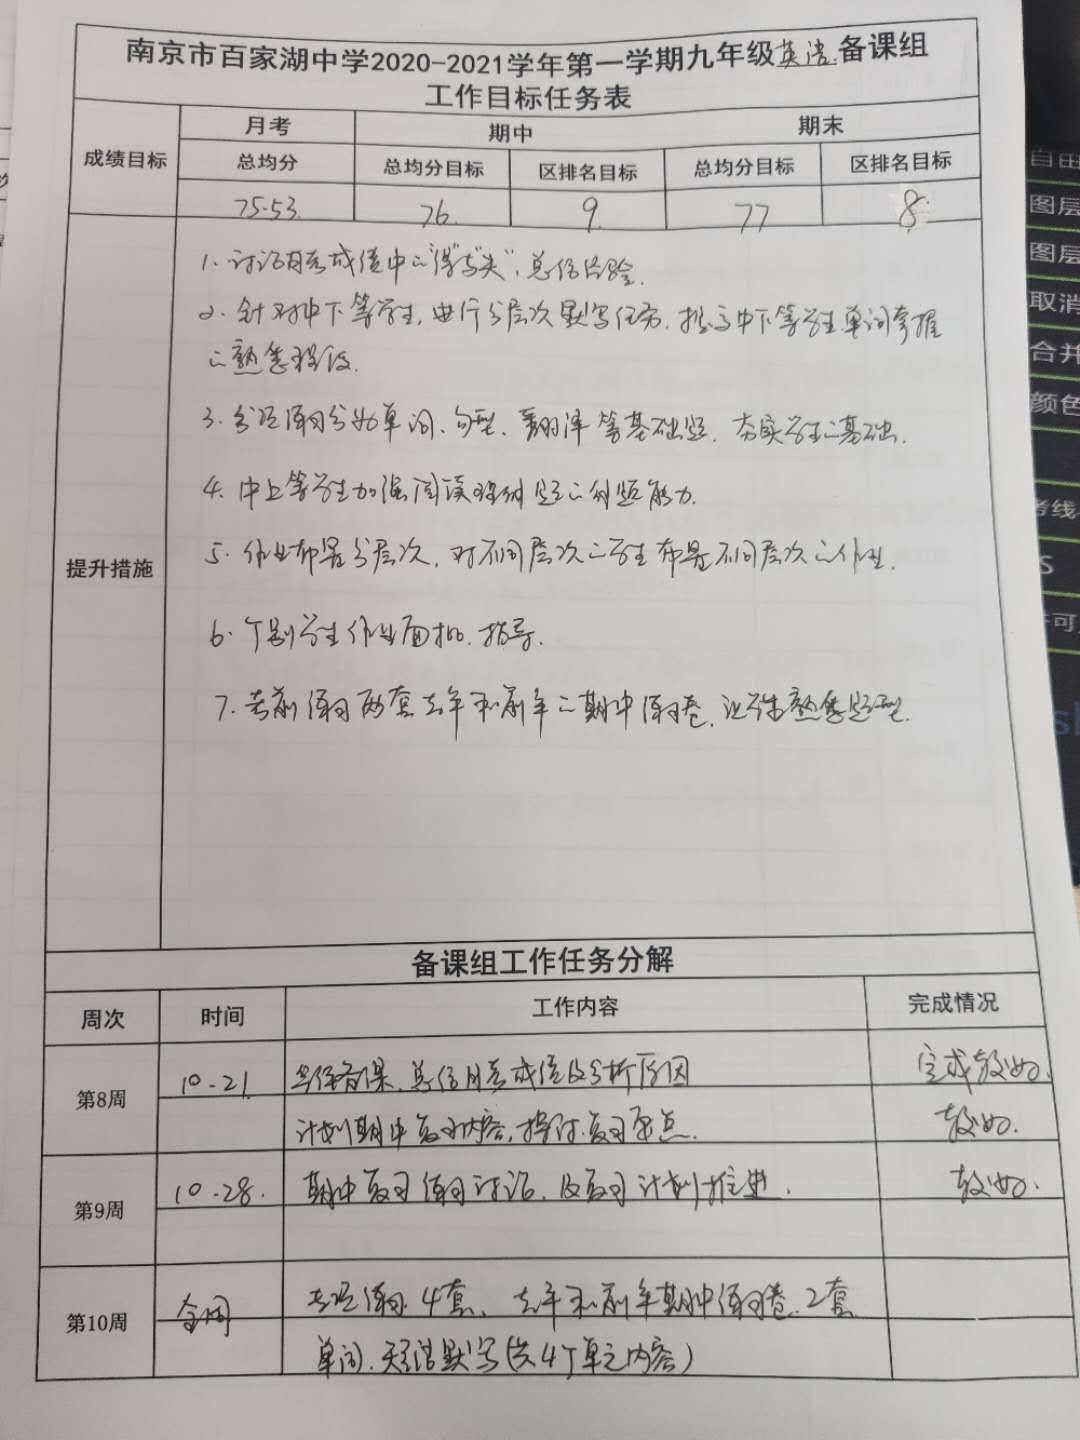 南京市百家湖中学2020-2021学年第一学期九年级英语备课组
工作目标任务表
成绩目标 月考 期中 期末
总均分 总均分目标 区排名目标 总均分目标 区排名目标
75.53 76 9 77 8
提升措施
1. 讨论月考成绩中的“得与失”,总结经验.
2. 针对中下等学生,进行分层次默写任务,提高中下等学生单词掌握
的熟悉程度.
3. 练习分为单词、句型、翻译等基础题,夯实学生的基础.
4. 中上等学生加强阅读理解题的解题能力.
5. 作业布置分层次,对不同层次的学生布置不同层次的作业.
6. 个别学生作业面批、指导.
7. 考前练习两套去年和前年的期中练习卷,让学生熟悉题型.
备课组工作任务分解
周次 时间 工作内容 完成情况
第8周 10.21 集体备课、总结月考成绩及分析原因 完成较好.
计划期中复习内容,探讨复习重点. 较好.
第9周 10.28. 期中复习练习讨论,及复习计划推进. 较好.
第10周 全周 专项练习4套、去年和前年期中练习卷2套
单词、天天语默写(共4个单元内容)
自由
图层
图层
取消
合并
颜色
考线
S
许可